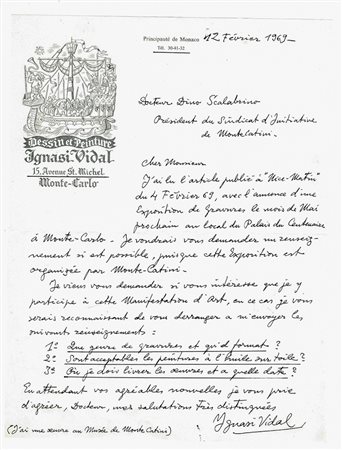 Principauté de Monaco
Tél. 30-41-32
12 Février 1969
Dessin et Peinture
Ignasi-Vidal
15, Avenue St. Michel
Monte-Carlo
Docteur Dino Scalabrino
Président du Sindicat d'Initiative
de Montecatini.
Cher Monsieur
J'ai lu l'article publié à "Nice-Matin"
du 4 Février 69, avec l'annonce d'une
Exposition de Gravures le mois de Mai
prochain au local du Palais du Centenaire
à Monte-Carlo. Je voudrais vous demander un renseig-
nement si est possible, puisque cette Exposition est
organizée par Monte-Catini.
Je viens vous demander si vous intéresse que je y
participe à cette Manifestation d'Art, en ce cas je vous
serais reconnaissant de vous derranger a m'envoyer les
suivants renseignements:
1º Que genre de gravures et qu'd format?
2º Sont acceptables les peintures à l'huile sur toile?
3º Ou je dois livrer les œuvres et a quelle date?
En attendant vos agréables nouvelles je vous prie
d'agréer, Docteur, mes salutations très distinguées
Ignasi Vidal
(J'ai une œuvre au Musée de Monte Catini)